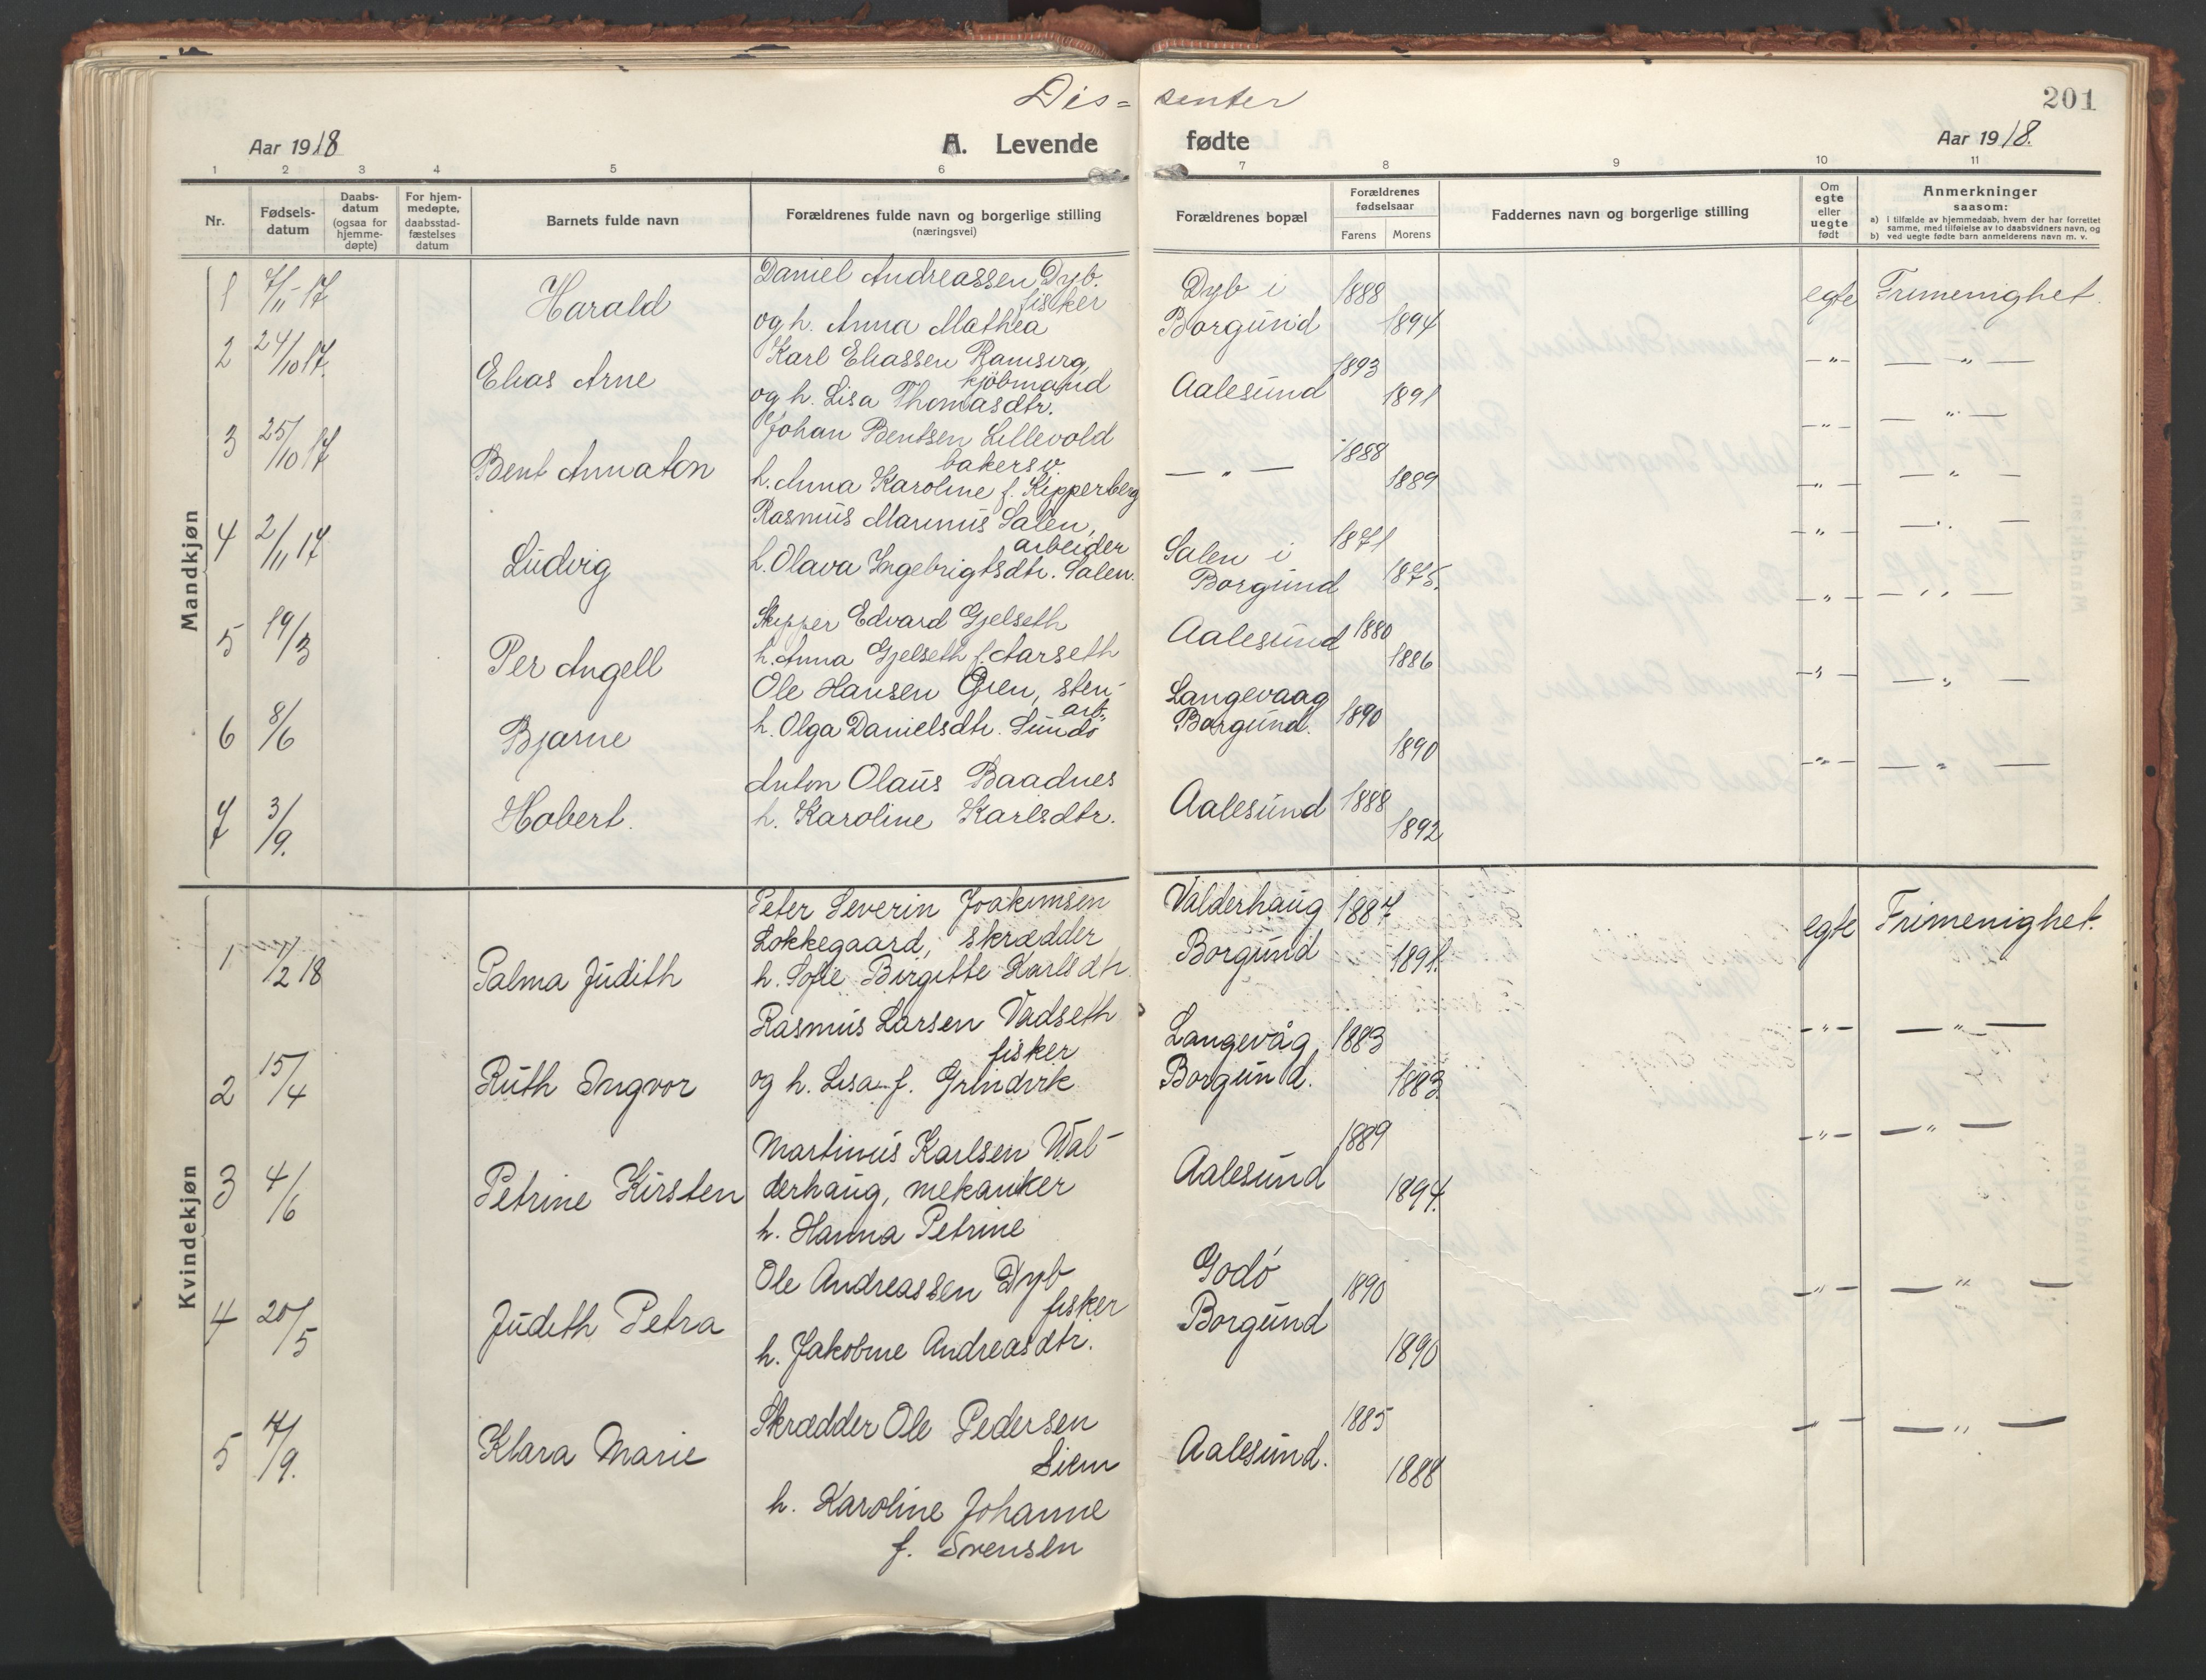 Dis= senter
201
Aar 1918
A. Levende fødte
Aar 1918.
1 2 3 4 5 6 7 8 9 10 11
Nr.
Fødsels-
datum
Daabs-
datum
(ogsaa for
hjemme-
døpte)
For hjem-
medøpte,
daabsstad-
fæstelses
datum
Barnets fulde navn
Forældrenes fulde navn og borgerlige stilling
(næringsvei)
Forældrenes bopæl
Forældrenes
fødselsaar
Farens Morens
Faddernes navn og borgerlige stilling
Om
egte
eller
uegte
født
Anmerkninger
saasom:
a) i tilfælde av hjemmedaab, hvem der har forrettet
samme, med tilføielse av to daabsvidners navn, og
b) ved uegte fødte barn anmelderens navn m. v.
Mandkjøn
1 7/11-17 Harald
Daniel Andreassen Dyb.
fisker
og h. Anna Mathea
Dyb i
Borgund
1888 1894
egte Frimenighet.
2 24/10 17. Elias Arne
Karl Eliassen
kjøbmand
og h. Lisa Thomasdtr.
Aalesund
1893 1891
—„— — „ —
3 25/10 17 Bent Annaton
Johan Bentsen Lillevold
bakersv.
h. Anna Karoline f. Kipperberg
— „ —
1888 1889
—„— — „ —
4 2/11 17 Ludvig
Rasmus Marinus Salen,
arbeider
h. Olava Ingebrigtsdtr. Salen.
Salen i
Borgund
1871 1875.
—„— — „ —
5 19/3 Per Angell
Skipper Edvard Gjelseth
h. Anna Gjelseth f. Aarseth
Aalesund
1880 1886
—„— — „ —
6 8/6 Bjarne
Ole Hansen Øien, sten-
arb.
h. Olga Danielsdtr. Sundø
Langevaag
Borgund.
1890 1890
—„— — „ —
7 3/9. Hobert.
Anton Olaus Baadnes
h. Karoline Karlsdtr.
Aalesund
1888 1892
—„— — „ —
Kvindekjøn
1 7/2 18 Palma Judith
Peter Severin Joakimsen
Løkkegaard, skrædder
h. Sofie Birgitte Karlsdtr.
Valderhaug
Borgund
1887 1891.
egte Frimenighet.
2 15/4 Ruth Ingvor
Rasmus Larsen Vadseth
fisker
og h. Lisa f. Grindvik
Langevåg
Borgund.
1883 1883
—„— — „ —
3 4/6 Petrine Kirsten
Martinus Karlsen Wal-
derhaug, mekaniker
h. Hanna Petrine
Aalesund
1889 1894.
—„— — „ —
4 20/5 Judith Petra
Ole Andreassen Dyb
fisker
h. Jakobine Andreasdtr.
Godø
Borgund
1890 1890
—„— — „ —
5 7/9. Klara Marie
Skrædder Ole Pedersen
Siem
h. Karoline Johanne
f. Svensen
Aalesund.
1885 1888
—„— — „ —